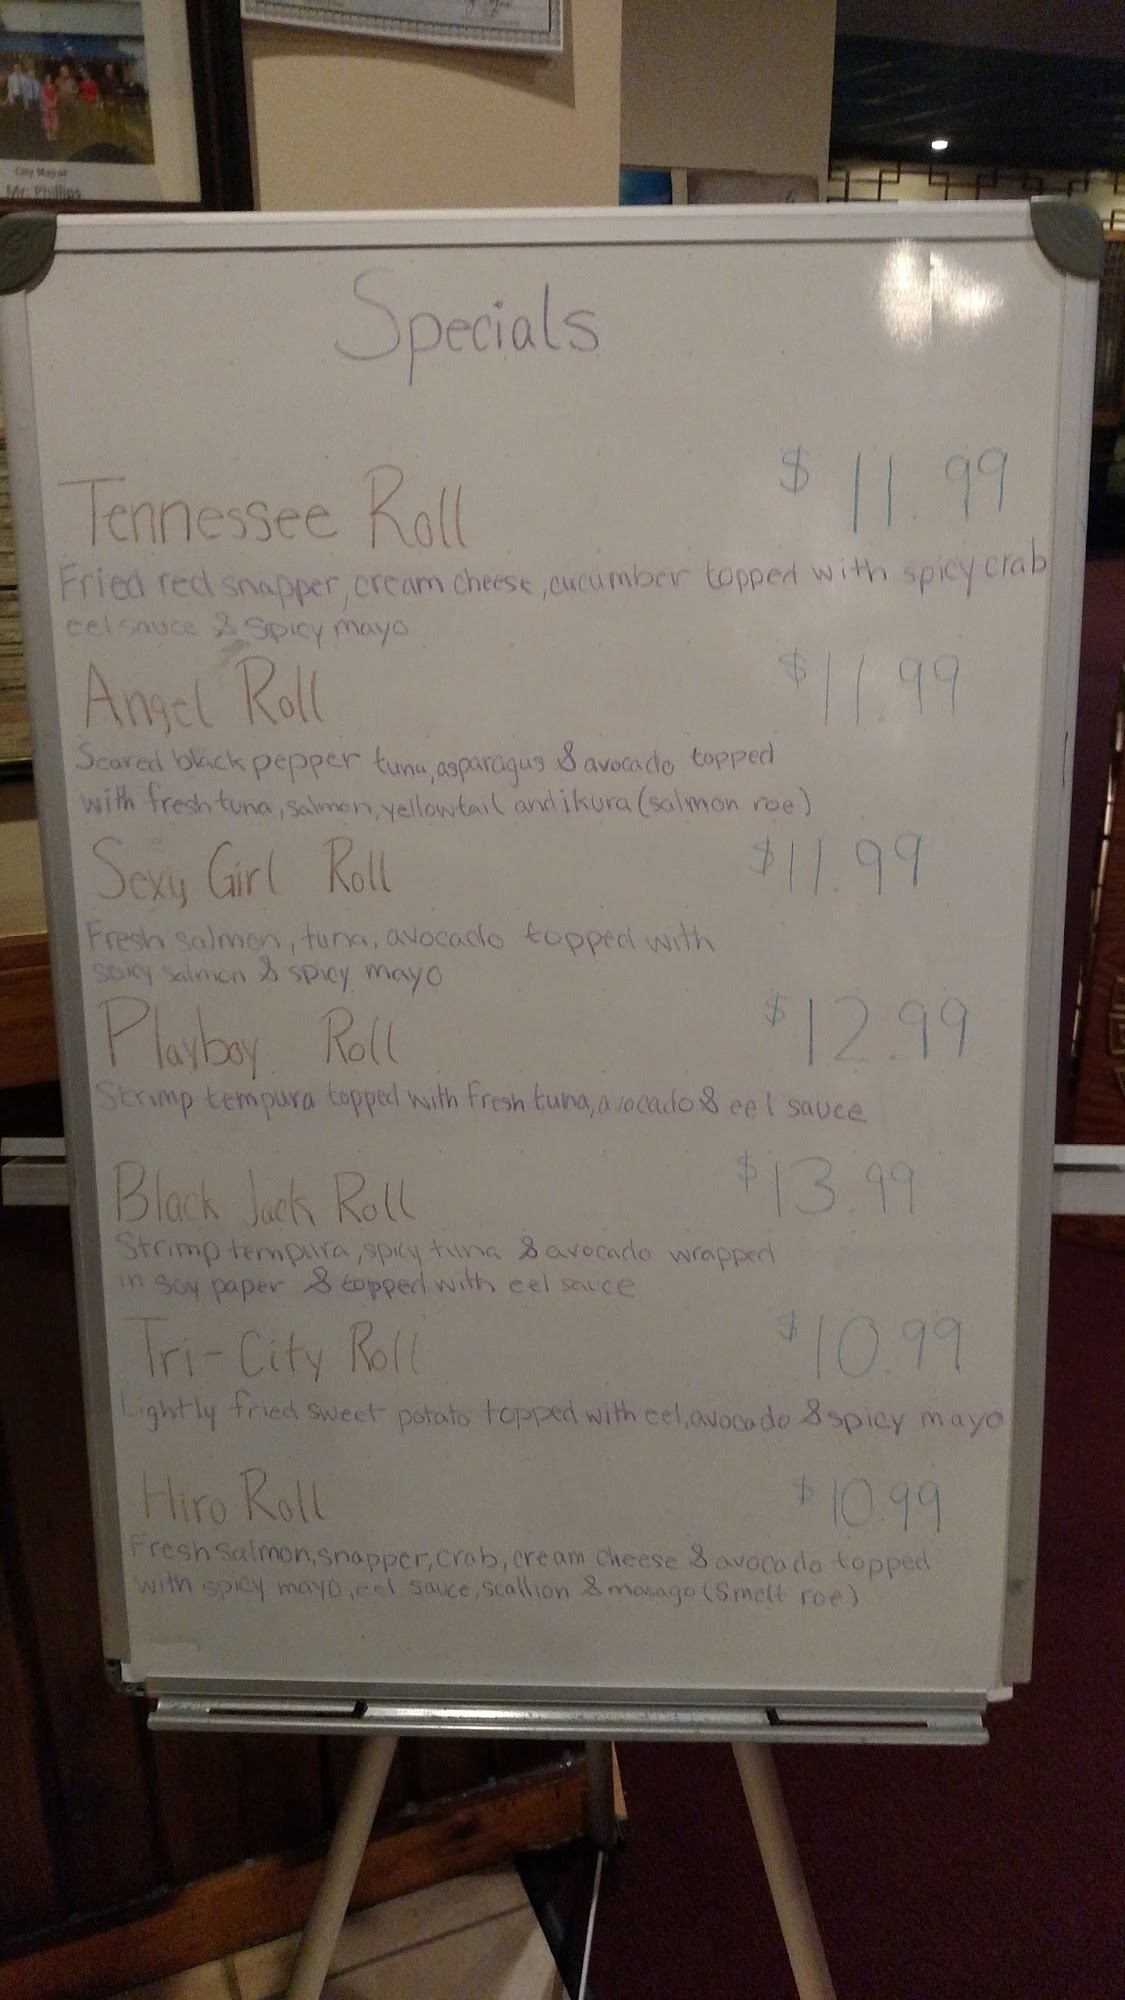 City Mayor
Mr. Phillips
Specials
Tennessee Roll $11.99
Fried red snapper, cream cheese, cucumber topped with spicy crab
eel sauce & spicy mayo
Angel Roll $11.99
Seared black pepper tuna, asparagus & avocado topped
with fresh tuna, salmon, yellowtail and ikura (salmon roe)
Sexy Girl Roll $11.99
Fresh salmon, tuna, avocado topped with
spicy salmon & spicy mayo
Playboy Roll $12.99
Strimp tempura topped with fresh tuna, avocado & eel sauce
Black Jack Roll $13.99
Strimp tempura, spicy tuna & avocado wrapped
in soy paper & topped with eel sauce
Tri-City Roll $10.99
Lightly fried sweet potato topped with eel, avocado & spicy mayo
Hiro Roll $10.99
Fresh salmon, snapper, crab, cream cheese & avocado topped
with spicy mayo, eel sauce, scallion & masago (smelt roe)